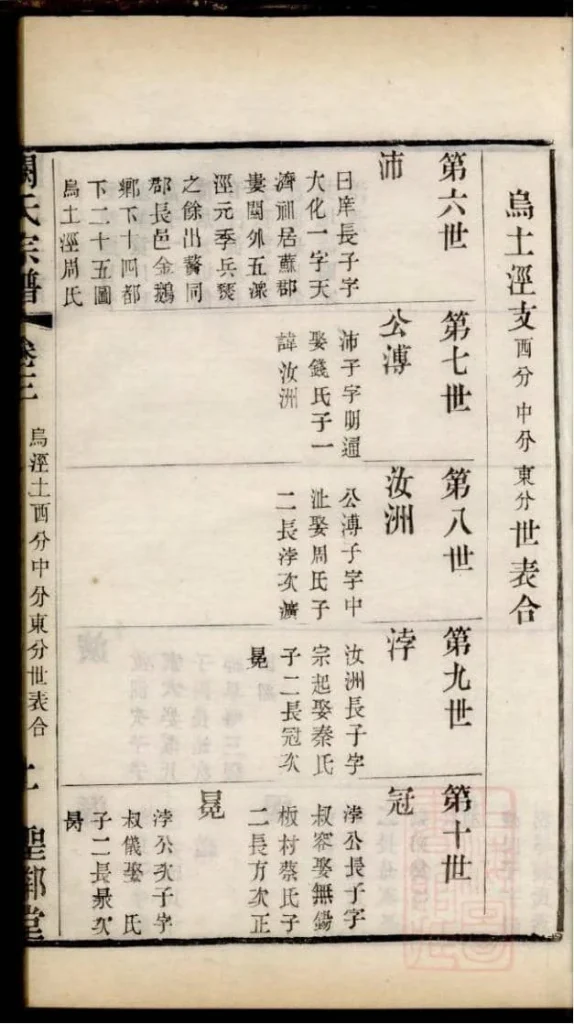 烏土涇支西分中分東分世表合
第六世
沛
日庠長子字
大化一字天
濟祖居蘇郡
婁關外五濼
涇元季兵燹
之餘出贅同
郡長邑金鵝
鄉下十四都
下二十五圖
烏土涇周氏
第七世
公溥
沛子字明通
娶錢氏子一
諱汝洲
第八世
汝洲
公溥子字中
沚娶周氏子
二長浡次濵
第九世
浡
汝洲長子字
宗起娶秦氏
子二長冠次
冕
第十世
冠
浡公長子字
叔容娶無錫
板村蔡氏子
二長方次正
冕
浡公次子字
叔儀娶 氏
子二長景次
氏宗譜
卷三
烏涇土西分中分東分世表合
堂